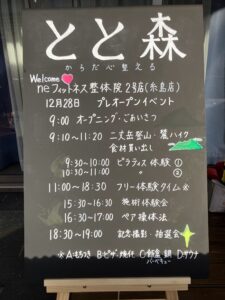 とと森
からだ心整える
Welcome
neフィットネス整体院2号店(糸島店)
12月28日 プレオープンイベント
9:00 オープニング・ごあいさつ
9:10～11:20 二丈岳登山・麓ハイク
食材買い出し
9:30～10:00 ピラティス体験①
10:30～11:00 〃 ②
11:00～18:30 フリー体験タイム※
15:30～16:30 施術体験会
16:30～17:00 ペア操体法
18:30～19:00 記念撮影・抽選会
※A.もちつき B.ピザ・燻化 C.飯盒 鍋 D.サウナ
バーベキュー